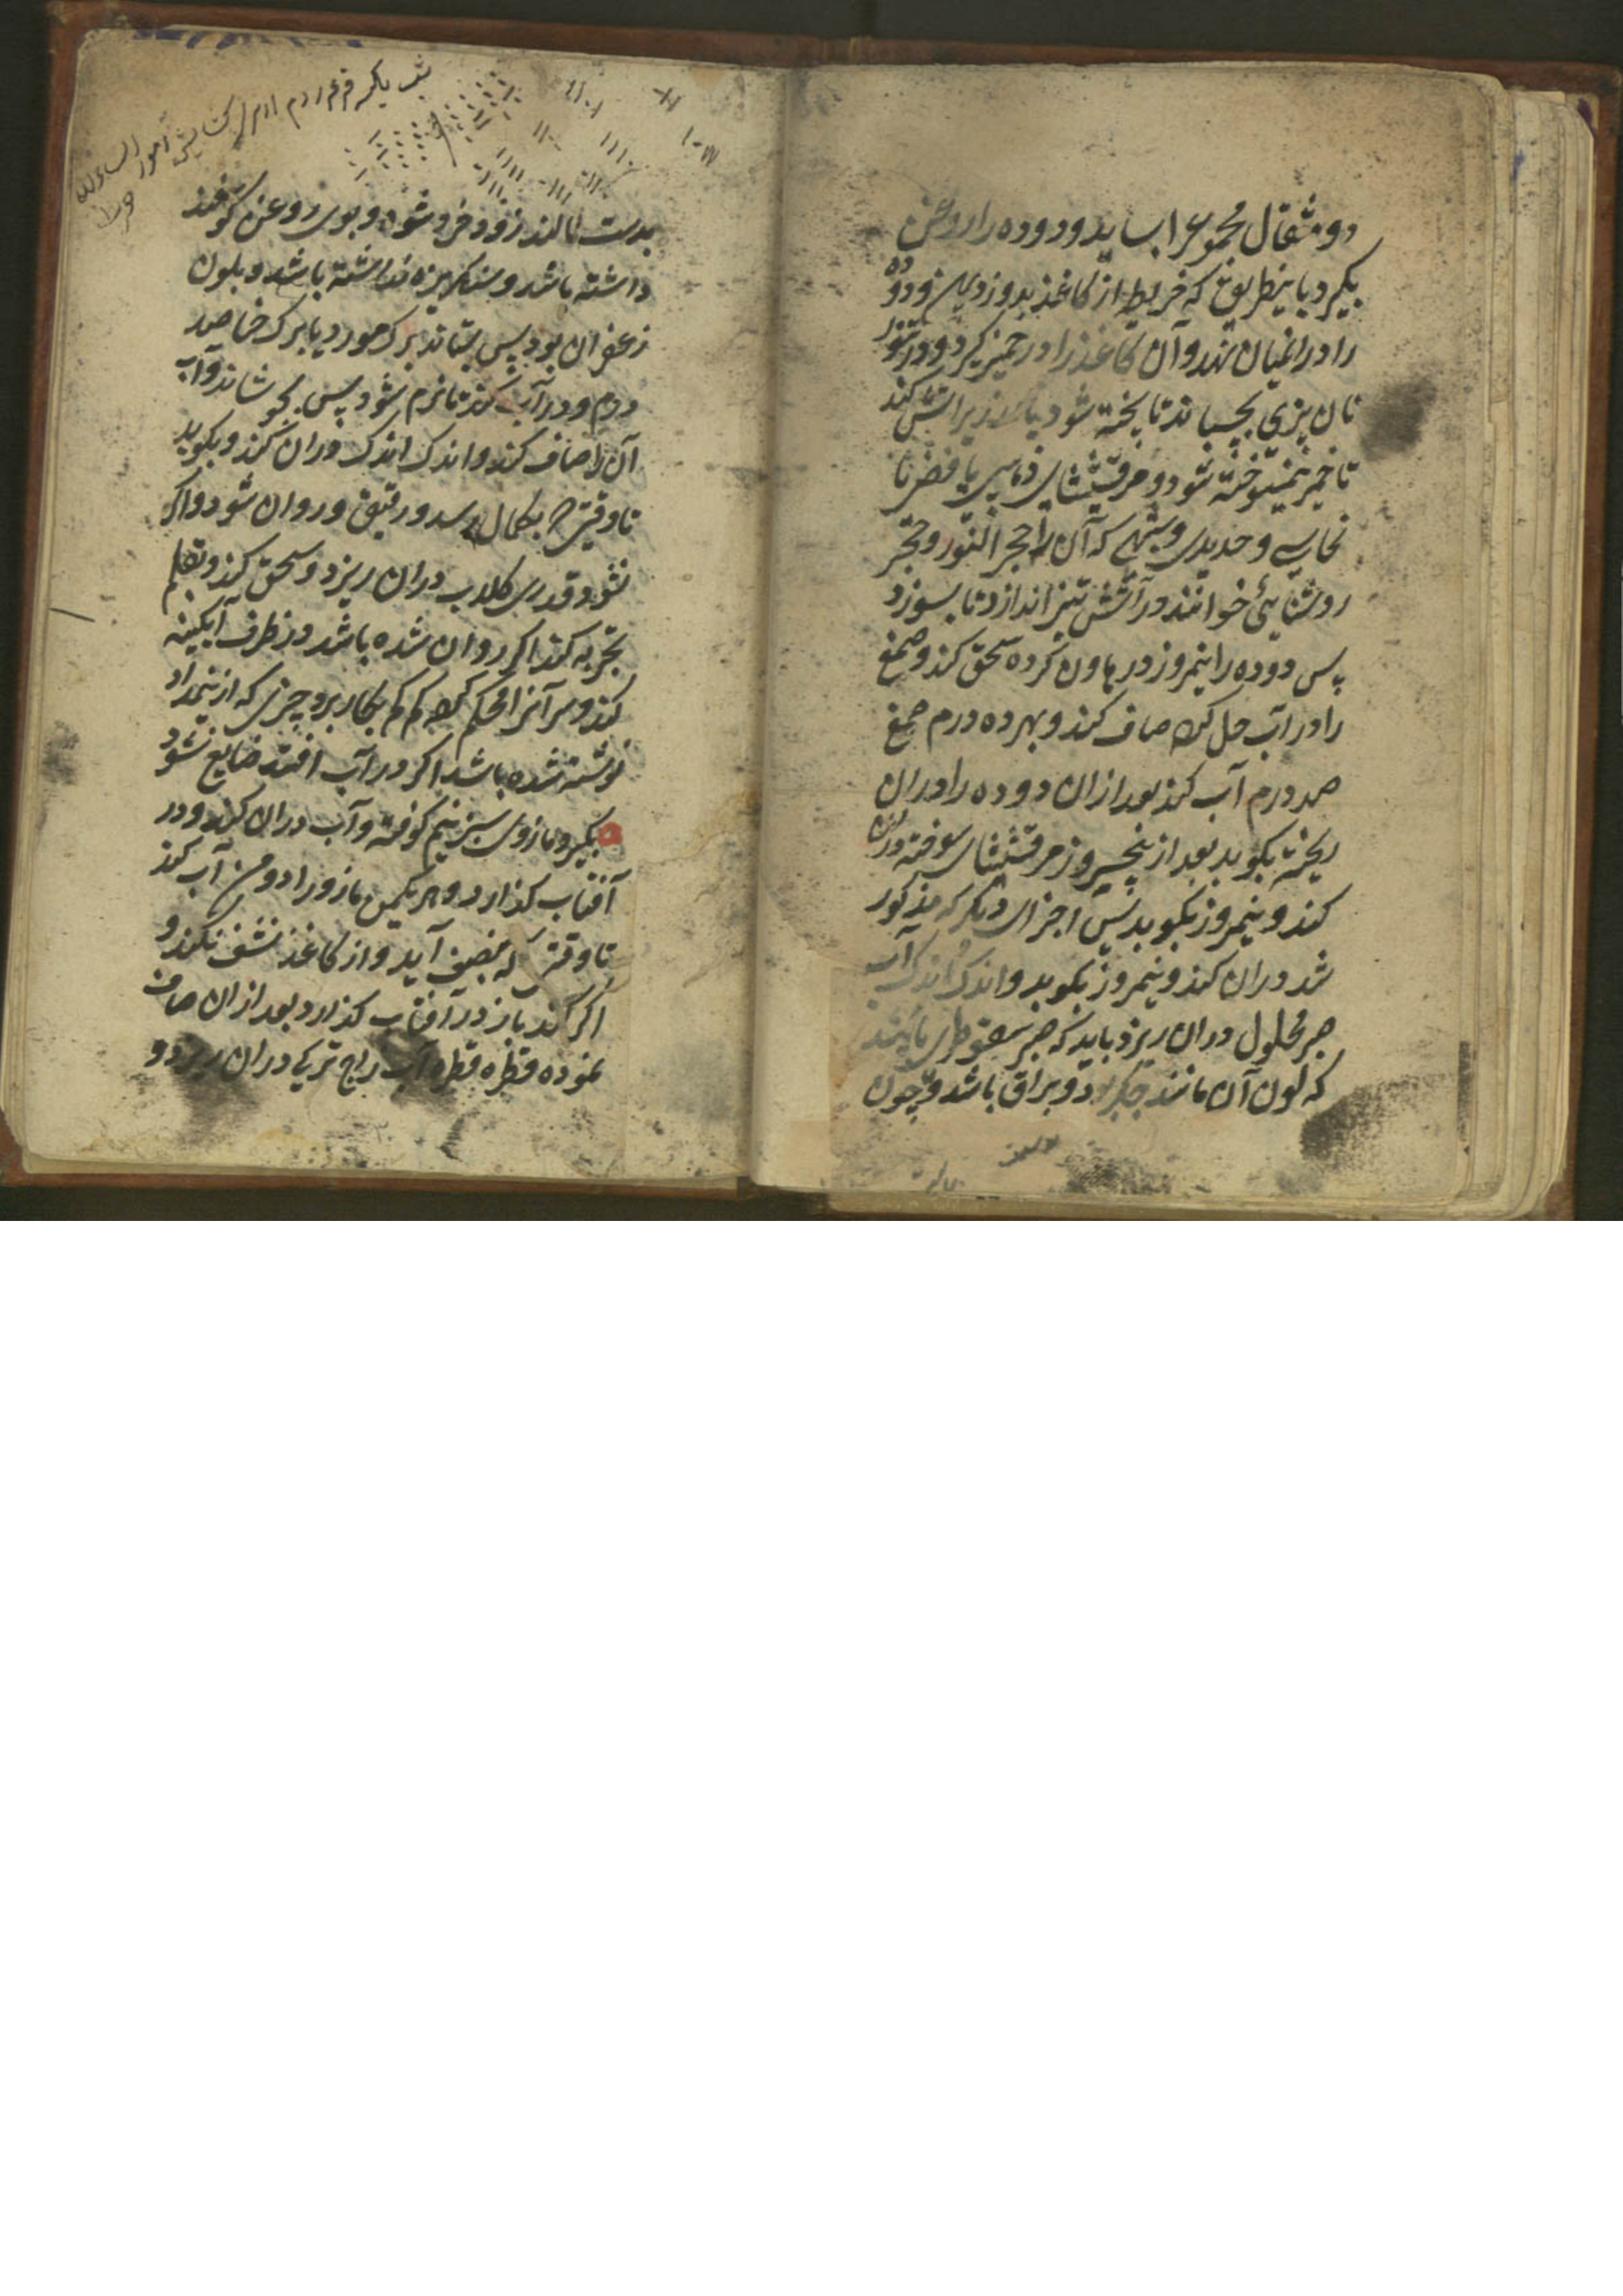 دو مثقال مجموع را بساید و دوده را روغن
بگیرد باینطریق که خریطه از کاغذ بدوزد و دوده
را در انمیان نهد و آن کاغذ را در خمیر گیرد و در تنور
نان پزی بچسباند تا پخته شود یا در زیر آتش کند
تا خمیر نیم سوخته شود و مرقشیشای ذهبی یا فضی یا
نحاسی و حدیدی و شبهی که آن را حجر النور و حجر
روشنایی خوانند در آتش تیز اندازد تا بسوزد
پس دوده را نیمروز در هاون کرده سحق کند و صمغ
را در آب حل کرده صاف کند و بهر ده درم صمغ
صد درم آب کند بعد ازان دوده را دران
ریخته بکوبد بعد از پنجروز مرقشیشای سوخته دران
کند و نیمروز بکوبد پس اجزای دیگر که مذکور
شد دران کند و نیمروز بکوبد و اندک اندک آب
صبر محلول دران ریزد باید که صبر سقوطری باشد
که لون آن مانند جگر بود و براق باشد و چون
بدست مالند زود خرد شود و بوی روغن گوسفند
داشته باشد و سنگریزه نداشته باشد و بلون
زعفران بود پس بستاند برگ مورد یا برگ حنا صد
درم و در آب کند تا نرم شود پس بجوشاند و آب
آن را صاف کند و اندک اندک دران کند و بکوبد
تا وقتی که بکمال رسد و رقیق و روان شود و اگر
نشود قدری گلاب دران ریزد و سحق کند و بقلم
تجربه کند اگر روان شده باشد در ظرف آبگینه
کند و سر آنرا محکم کرده کم کم بکار برد چیزی که ازینمداد
نوشته شده باشد اگر در آب افتد ضایع نشود
بگیرد مازوی سبز نیم کوفته و آب دران کند و در
آفتاب گذارد و هر یکمن مازو را دو من آب کند
تا وقتی که بنصف آید و از کاغذ نشف نکند و
اگر کند باز در آفتاب گذارد بعد ازان صاف
نموده قطره قطره آب زاج ترکی دران ریزد و